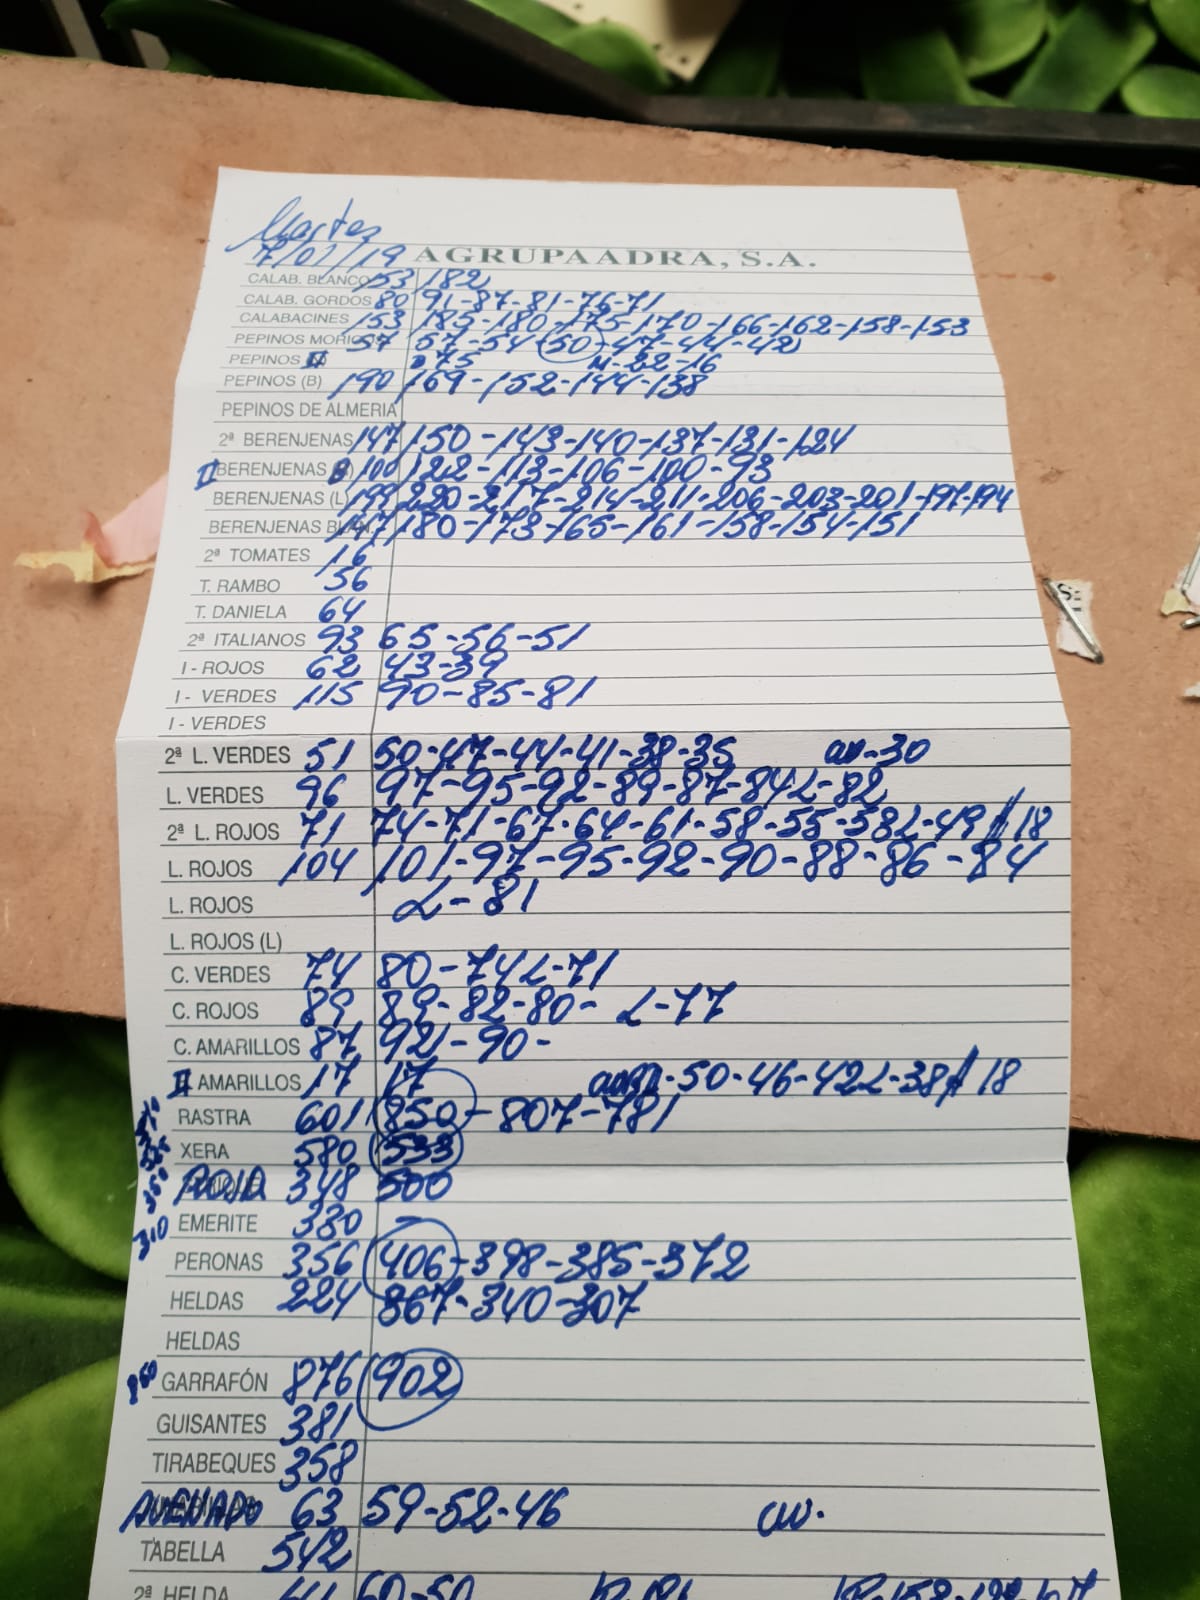 Martes
7/01/19 AGRUPAADRA, S.A.
CALAB. BLANCO 153 182
CALAB. GORDOS 80 91-87-81-76-71
CALABACINES 153 185-180-175-170-166-162-158-153
PEPINOS 57 57-54-50-47-44-42
PEPINOS II 75 M-22-16
PEPINOS (B) 190 169-152-144-138
PEPINOS DE ALMERIA
2ª BERENJENAS 147 150-143-140-137-131-124
II BERENJENAS 100 122-113-106-100-93
BERENJENAS (L) 199 220-217-214-211-206-203-201-197-194
BERENJENAS BLAN. 147 180-173-165-161-158-154-151
2ª TOMATES 16
T. RAMBO 56
T. DANIELA 64
2ª ITALIANOS 93 65-56-51
I - ROJOS 62 43-39
I - VERDES 115 90-85-81
I - VERDES
2ª L. VERDES 51 50-47-44-41-38-35 -30
L. VERDES 96 97-95-92-89-87-84L-82
2ª L. ROJOS 71 74-71-67-64-61-58-55-58L-49 // 18
L. ROJOS 104 101-97-95-92-90-88-86-84
L. ROJOS L-81
L. ROJOS (L)
C. VERDES 74 80-74L-71
C. ROJOS 89 89-82-80- L-77
C. AMARILLOS 87 92-90-
II AMARILLOS 17 17 -50-46-42L-38 // 18
RASTRA 601 850-807-781
XERA 580 533
350 ROJA 348 500
EMERITE 330
310 PERONAS 356 406-398-385-372
HELDAS 224 867-340-307
HELDAS
860 GARRAFÓN 876 902
GUISANTES 381
TIRABEQUES 358
63 59-52-46
TABELLA 542
2ª HELDA 60-50